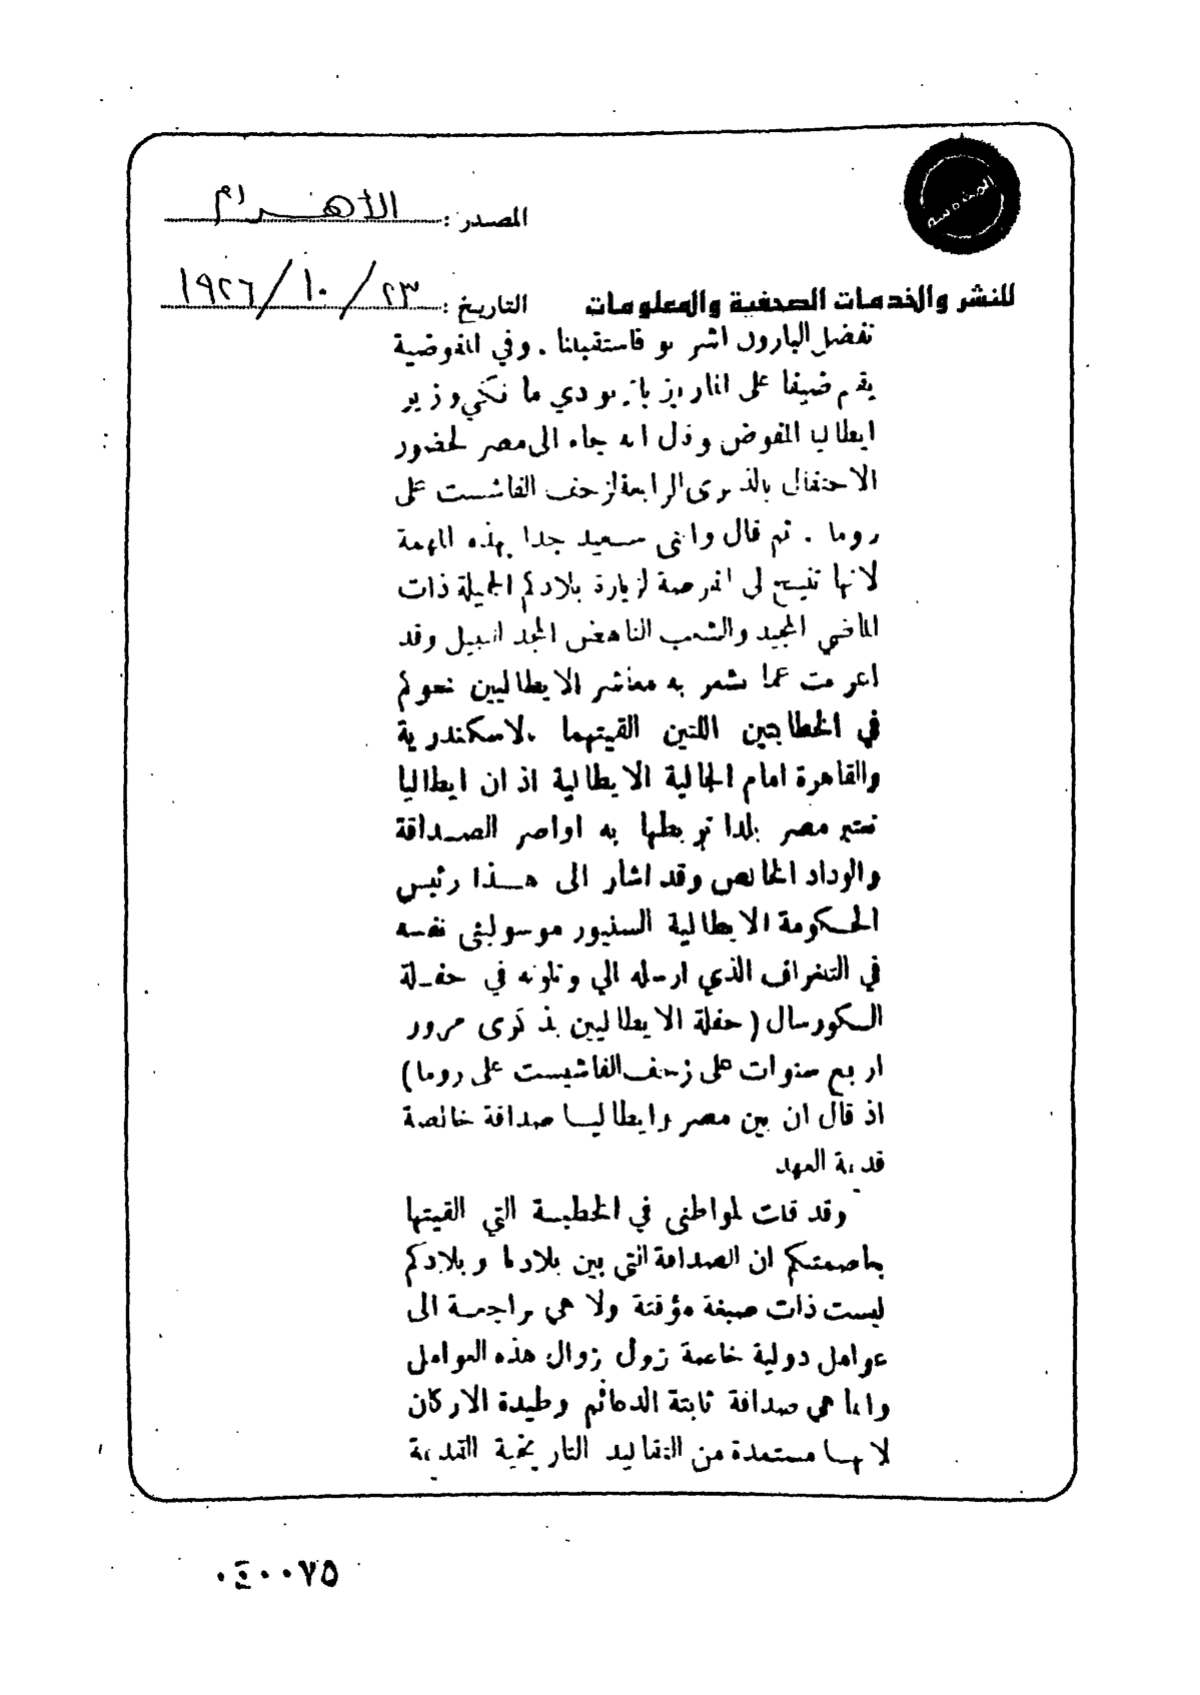 المصدر : الأهرام
التاريخ : ٢٣/١٠/١٩٢٦
للنشر والخدمات الصحفية والمعلومات
تفضل البارون فاستقبلنا . وفي المفوضية
يقيم ضيفا على المركيز باترنو دي مانكي وزير
ايطاليا المفوض وقال انه جاء الى مصر لحضور
الاحتفال بالذكرى الرابعة لزحف الفاشست على
روما . ثم قال وانى سعيد جدا بهذه المهمة
لانها تتيح لى الفرصة لزيارة بلادكم الجميلة ذات
الماضي المجيد والشعب الناهض المجد النبيل وقد
اعربت عما نشعر به معاشر الايطاليين نحوكم
في الخطابتين اللتين القيتهما بالاسكندرية
والقاهرة امام الجالية الايطالية اذ ان ايطاليا
تعتبر مصر بلدا تربطها به اواصر الصداقة
والوداد الخالص وقد اشار الى هذا رئيس
الحكومة الايطالية السنيور موسوليني نفسه
في التلغراف الذي ارسله الي وتلوته في حفلة
الكورسال ( حفلة الايطاليين بذكرى مرور
اربع سنوات على زحف الفاشيست على روما )
اذ قال ان بين مصر وايطاليا صداقة خالصة
قديمة العهد
وقد قلت لمواطنى في الخطبة التي القيتها
بعاصمتكم ان الصداقة التي بين بلادنا وبلادكم
ليست ذات صبغة مؤقتة ولا هي براجعة الى
عوامل دولية خاصة تزول بزوال هذه العوامل
وانما هي صداقة ثابتة الدعائم وطيدة الاركان
لانها مستمدة من التقاليد التاريخية القديمة
٠٤٠٠٧٥